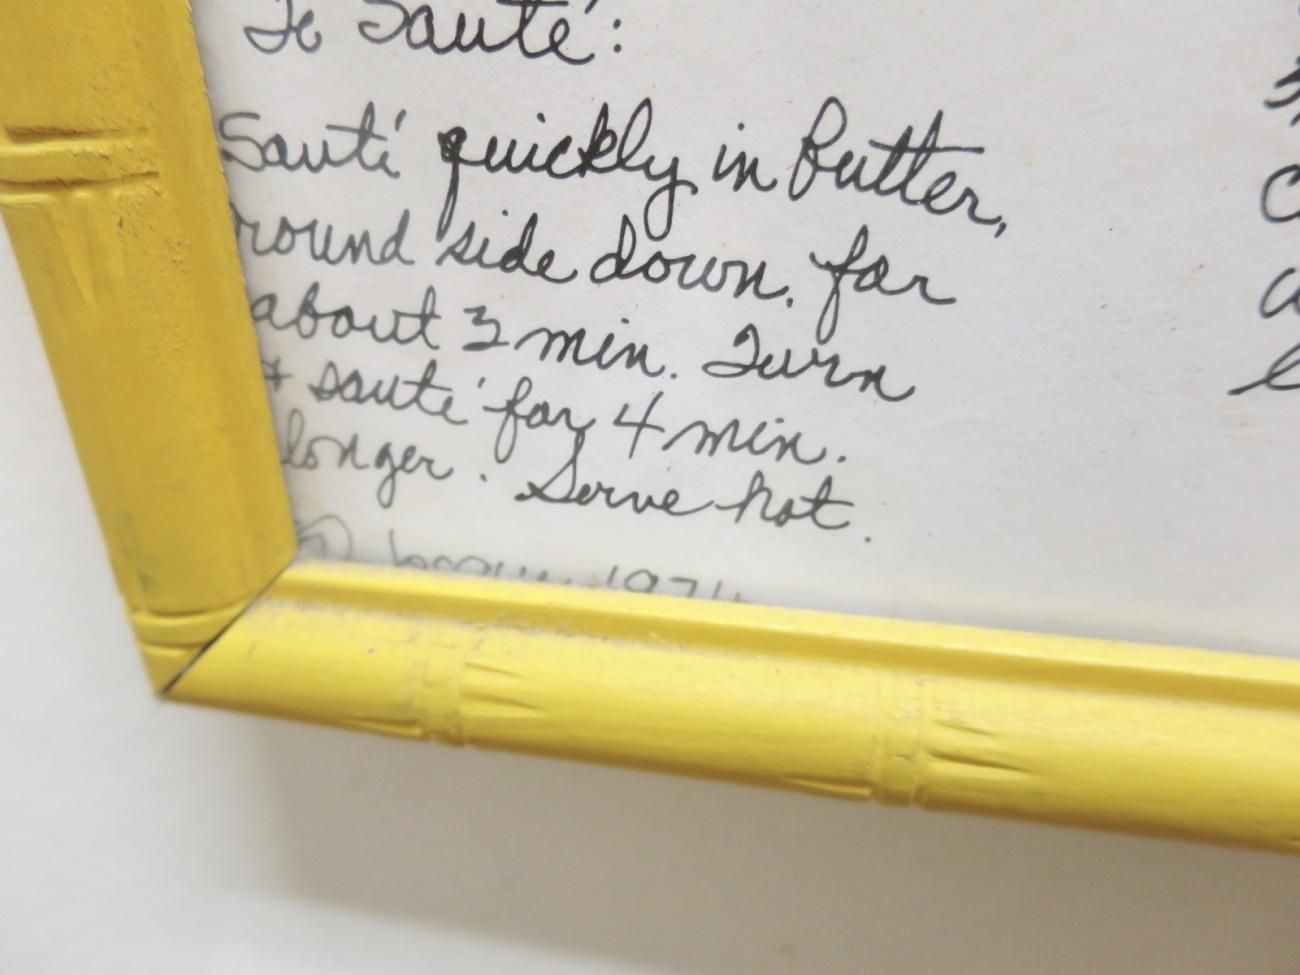 To Sauté:
Sauté quickly in butter,
round side down. for
about 3 min. Turn
+ sauté for 4 min.
longer. Serve hot.
1974